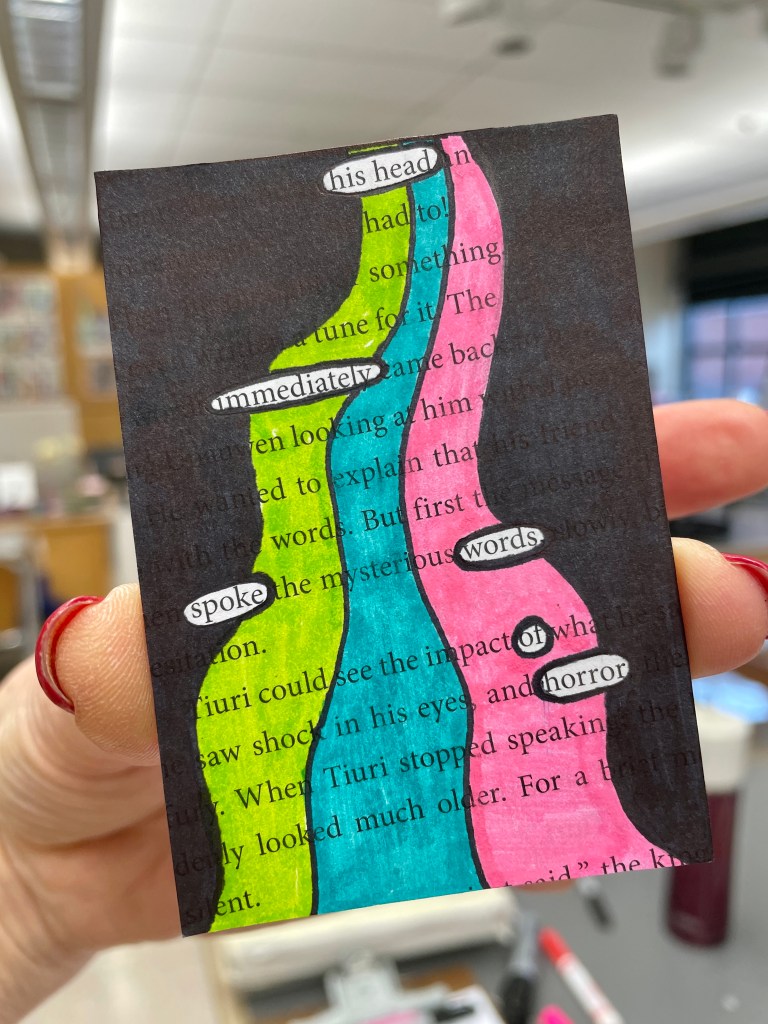 his head in
had to!
something
a tune for it. The
immediately came back
looking at him
wanted to explain that his friend
with the words. But first the message
spoke the mysterious words, slowly,
hesitation.
Tiuri could see the impact of what
he saw shock in his eyes, and horror
fully. When Tiuri stopped speaking, the
denly looked much older. For a
silent.
said,” the king